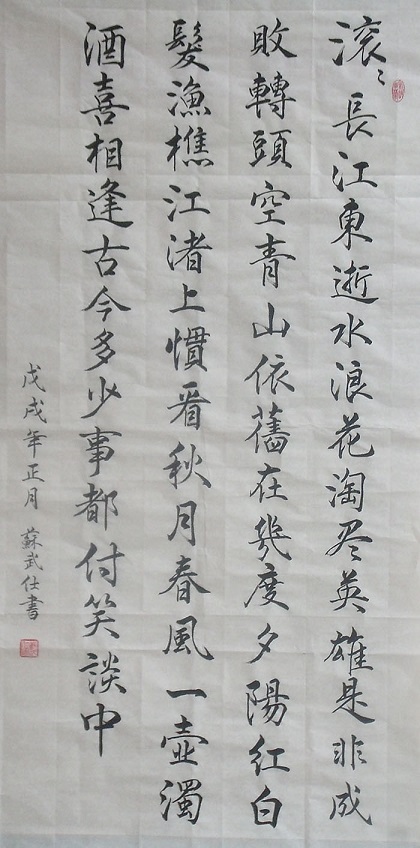 滚〻長江東逝水浪花淘尽英雄是非成
敗轉頭空青山依舊在幾度夕陽紅白
髮漁樵江渚上慣看秋月春風一壺濁
酒喜相逢古今多少事都付笑談中
戊戌年正月蘇武仕書